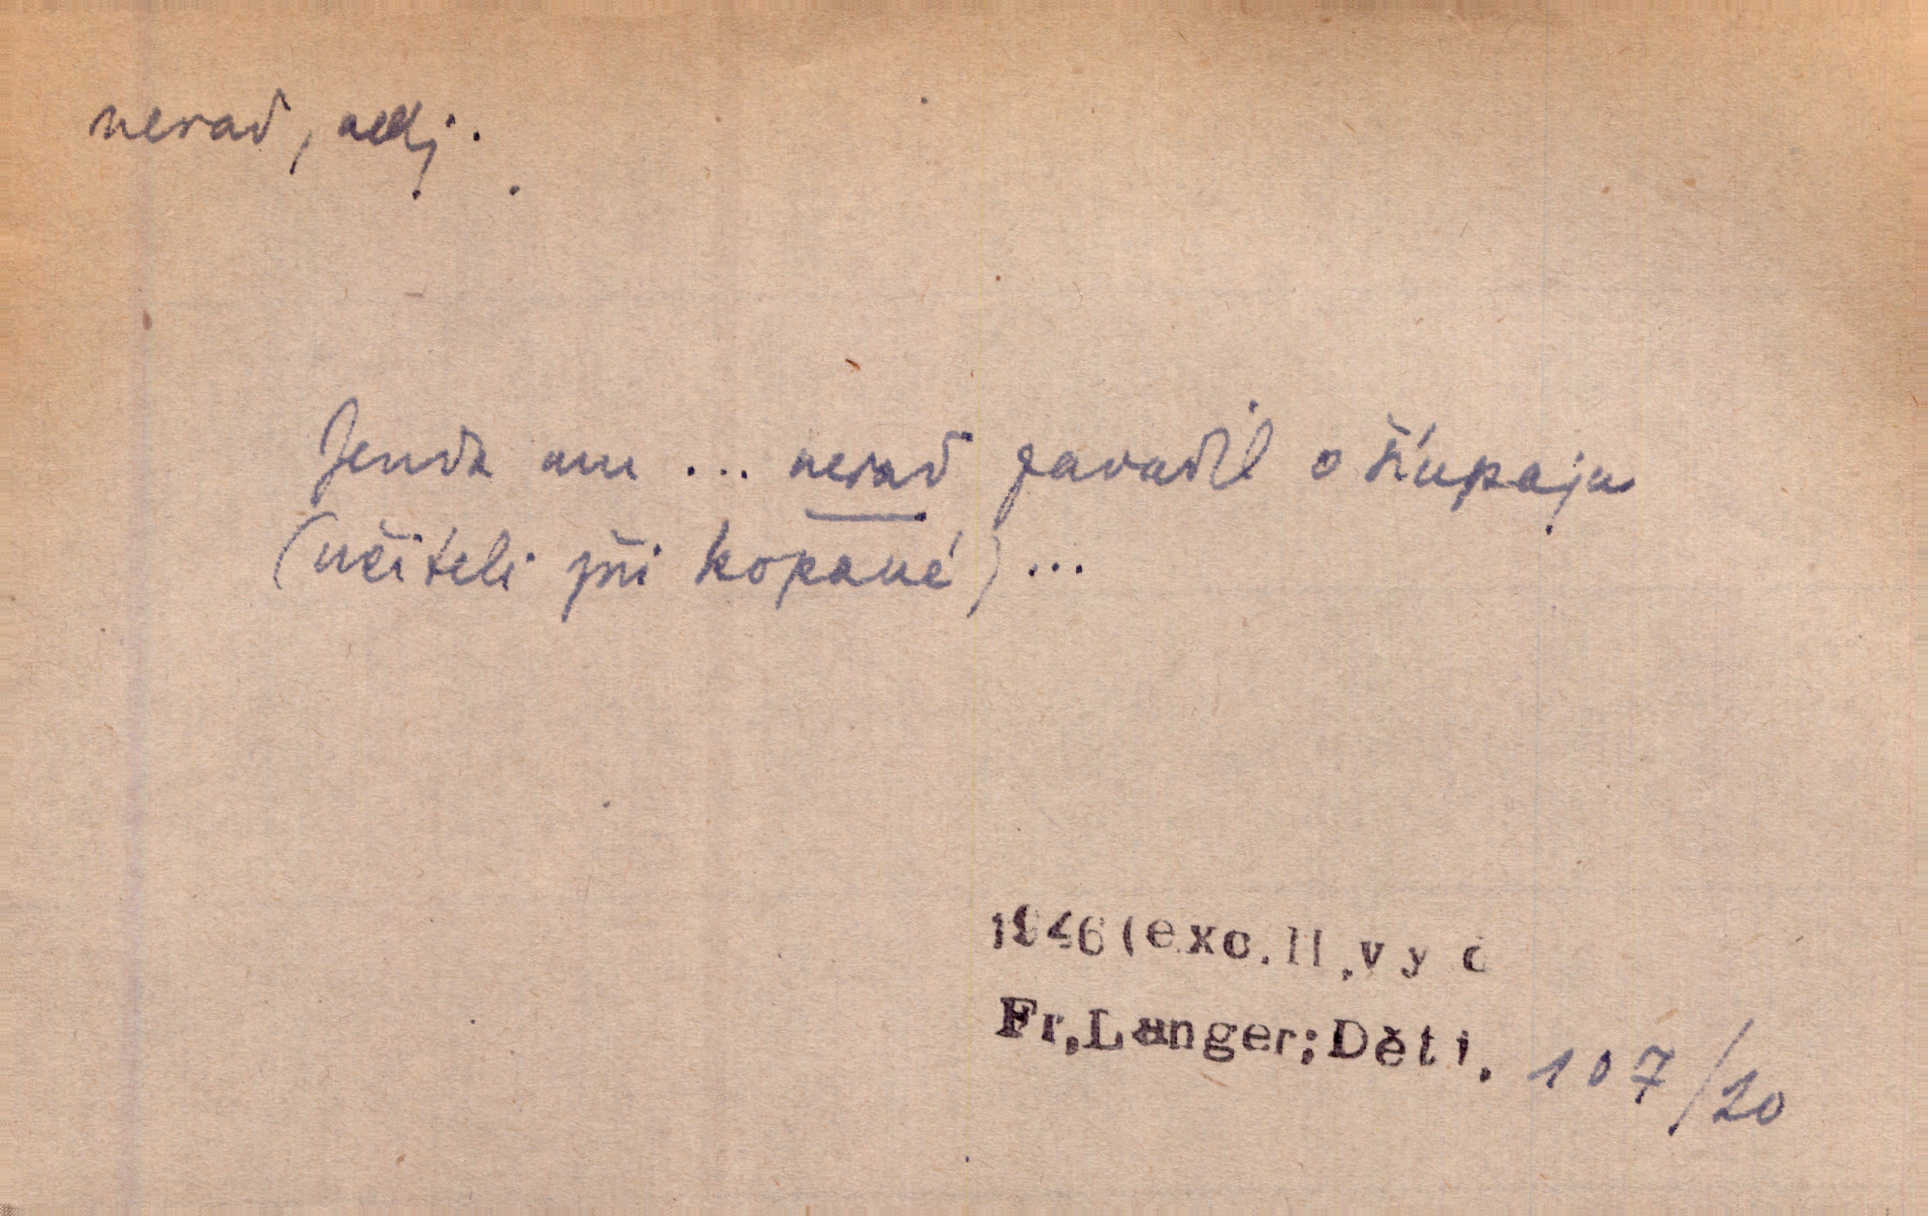 nerad, adj.
Jenda mu ... nerad zavadil o šlupaju
(učiteli při kopané) ...
1946 (exc. II, vyd
Fr, Langer; Děti. 107/20